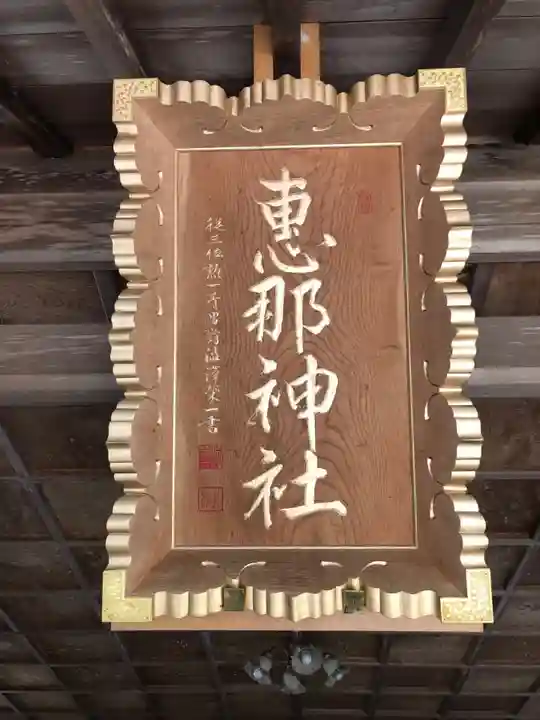 惠那神社
従三位勲一等男爵渋澤榮一書